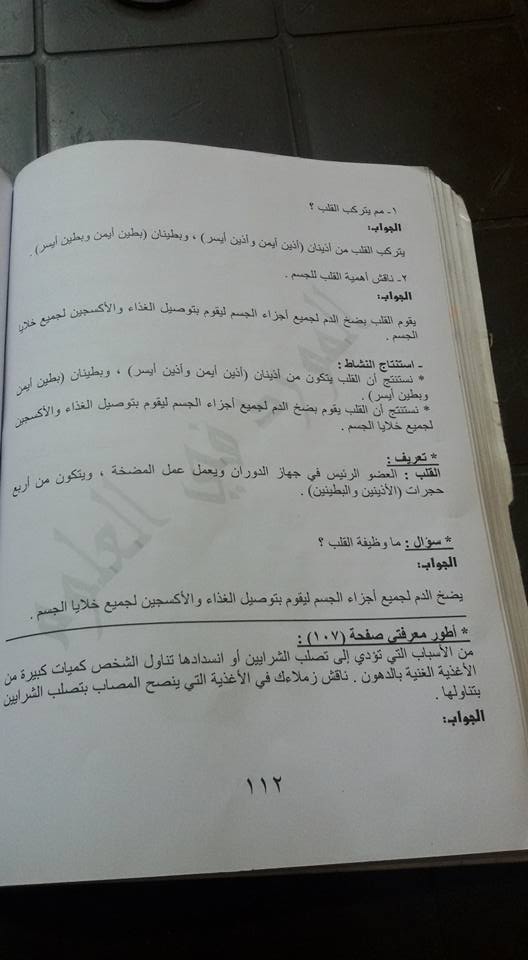 ١- مم يتركب القلب ؟
الجواب:
يتركب القلب من أذينان (أذين أيمن وأذين أيسر) ، وبطينان (بطين أيمن وبطين أيسر) .
٢- ناقش أهمية القلب للجسم .
الجواب:
يقوم القلب بضخ الدم لجميع أجزاء الجسم ليقوم بتوصيل الغذاء والأكسجين لجميع خلايا
الجسم .
ـ استنتاج النشاط :
* نستنتج أن القلب يتكون من أذينان (أذين أيمن وأذين أيسر) ، وبطينان (بطين أيمن
وبطين أيسر) .
* نستنتج أن القلب يقوم بضخ الدم لجميع أجزاء الجسم ليقوم بتوصيل الغذاء والأكسجين
لجميع خلايا الجسم .
* تعريف :
القلب : العضو الرئيس في جهاز الدوران ويعمل عمل المضخة ، ويتكون من أربع
حجرات (الأذينين والبطينين) .
* سؤال : ما وظيفة القلب ؟
الجواب:
يضخ الدم لجميع أجزاء الجسم ليقوم بتوصيل الغذاء والأكسجين لجميع خلايا الجسم .
* أطور معرفتي صفحة (١٠٧) :
من الأسباب التي تؤدي إلى تصلب الشرايين أو انسدادها تناول الشخص كميات كبيرة من
الأغذية الغنية بالدهون . ناقش زملاءك في الأغذية التي ينصح المصاب بتصلب الشرايين
بتناولها .
الجواب:
١١٢